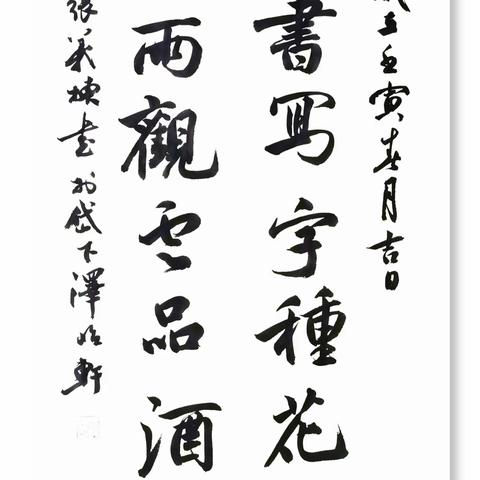 歲在壬寅春月吉日
書寫字種花
雨觀雲品酒
張義棟書於岱下澤临軒